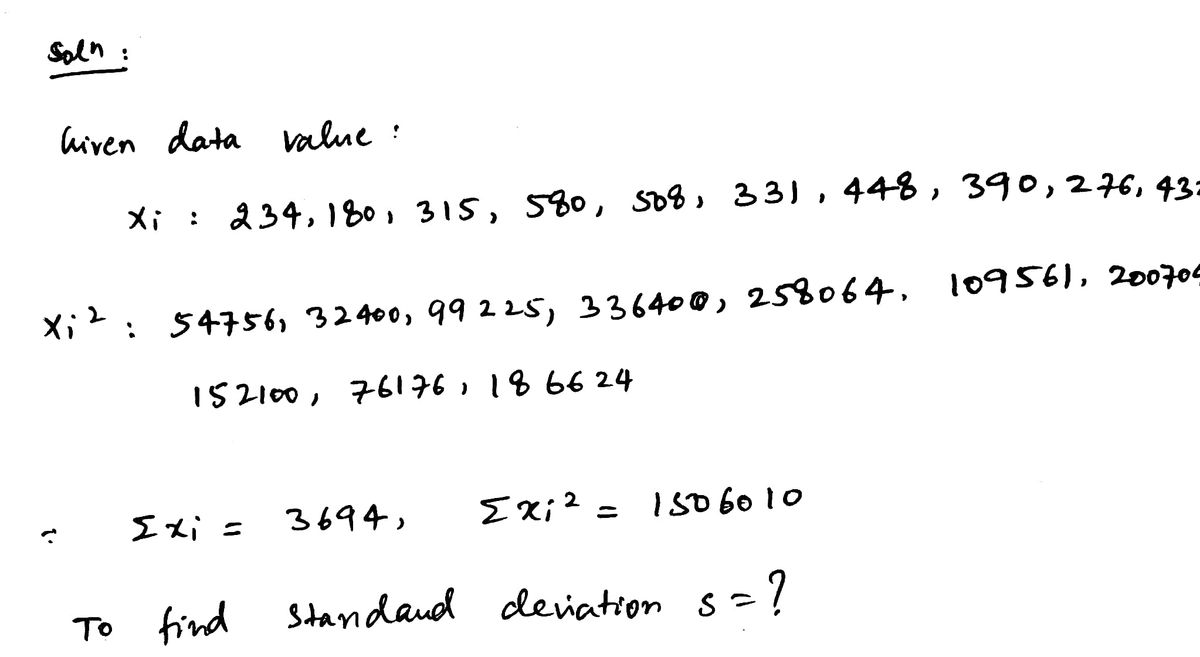 Soln :
Given data value :
xi : 234, 180, 315, 580, 508, 331, 448, 390, 276, 43
xi² : 54756, 32400, 99225, 336400, 258064, 109561, 20070
152100, 76176, 186624
∴ Σxi = 3694, Σxi² = 1506010
To find standard deviation s = ?